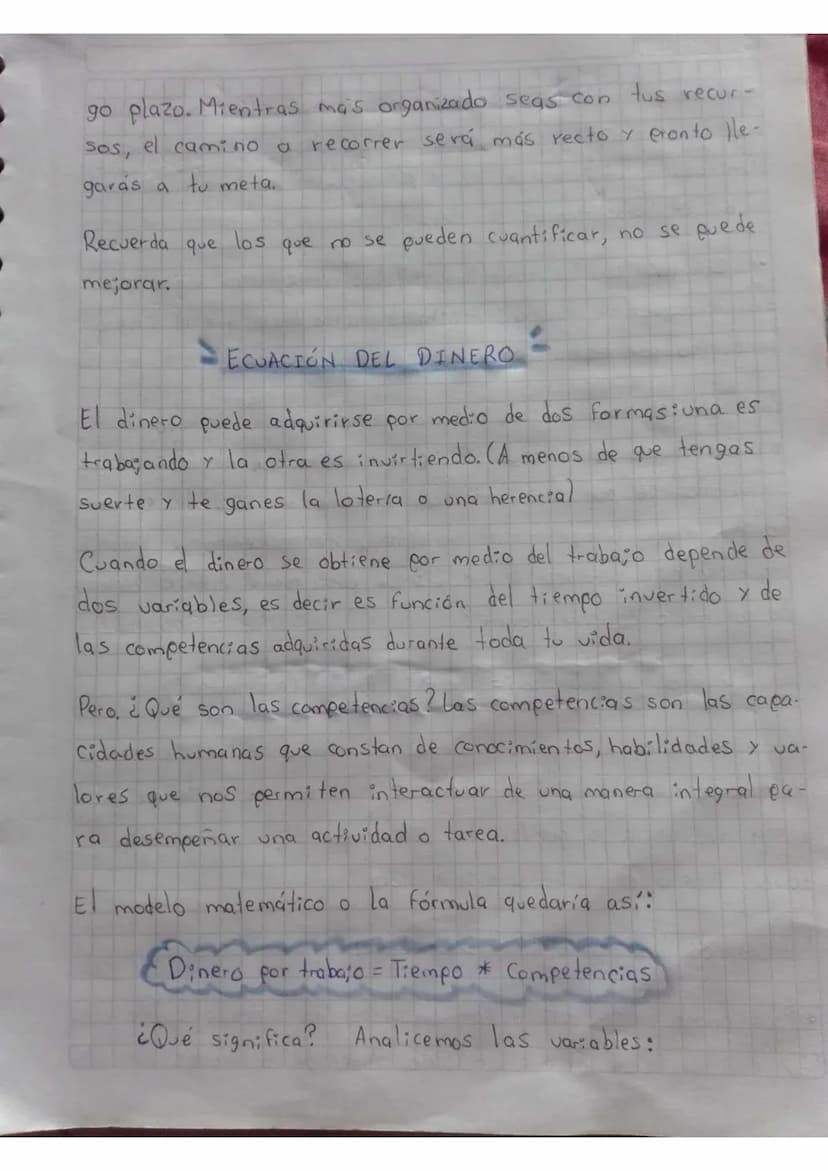 go plazo. Mientras más organizado seas con tus recur-
sos, el camino a recorrer será más recto y pronto lle-
garás a tu meta.
Recuerda que los que no se pueden cuantificar, no se puede
mejorar.
ECUACIÓN DEL DINERO
El dinero puede adquirirse por medio de dos formas: una es
trabajando y la otra es invirtiendo. (A menos de que tengas
suerte y te ganes la lotería o una herencia)
Cuando el dinero se obtiene por medio del trabajo depende de
dos variables, es decir es función del tiempo invertido y de
las competencias adquiridas durante toda tu vida.
Pero, ¿Qué son las competencias? Las competencias son las capa-
cidades humanas que constan de conocimientos, habilidades y va-
lores que nos permiten interactuar de una manera integral pa-
ra desempeñar una actividad o tarea.
El modelo matemático o la fórmula quedaría así:
Dinero por trabajo = Tiempo * Competencias
¿Qué significa? Analicemos las variables: